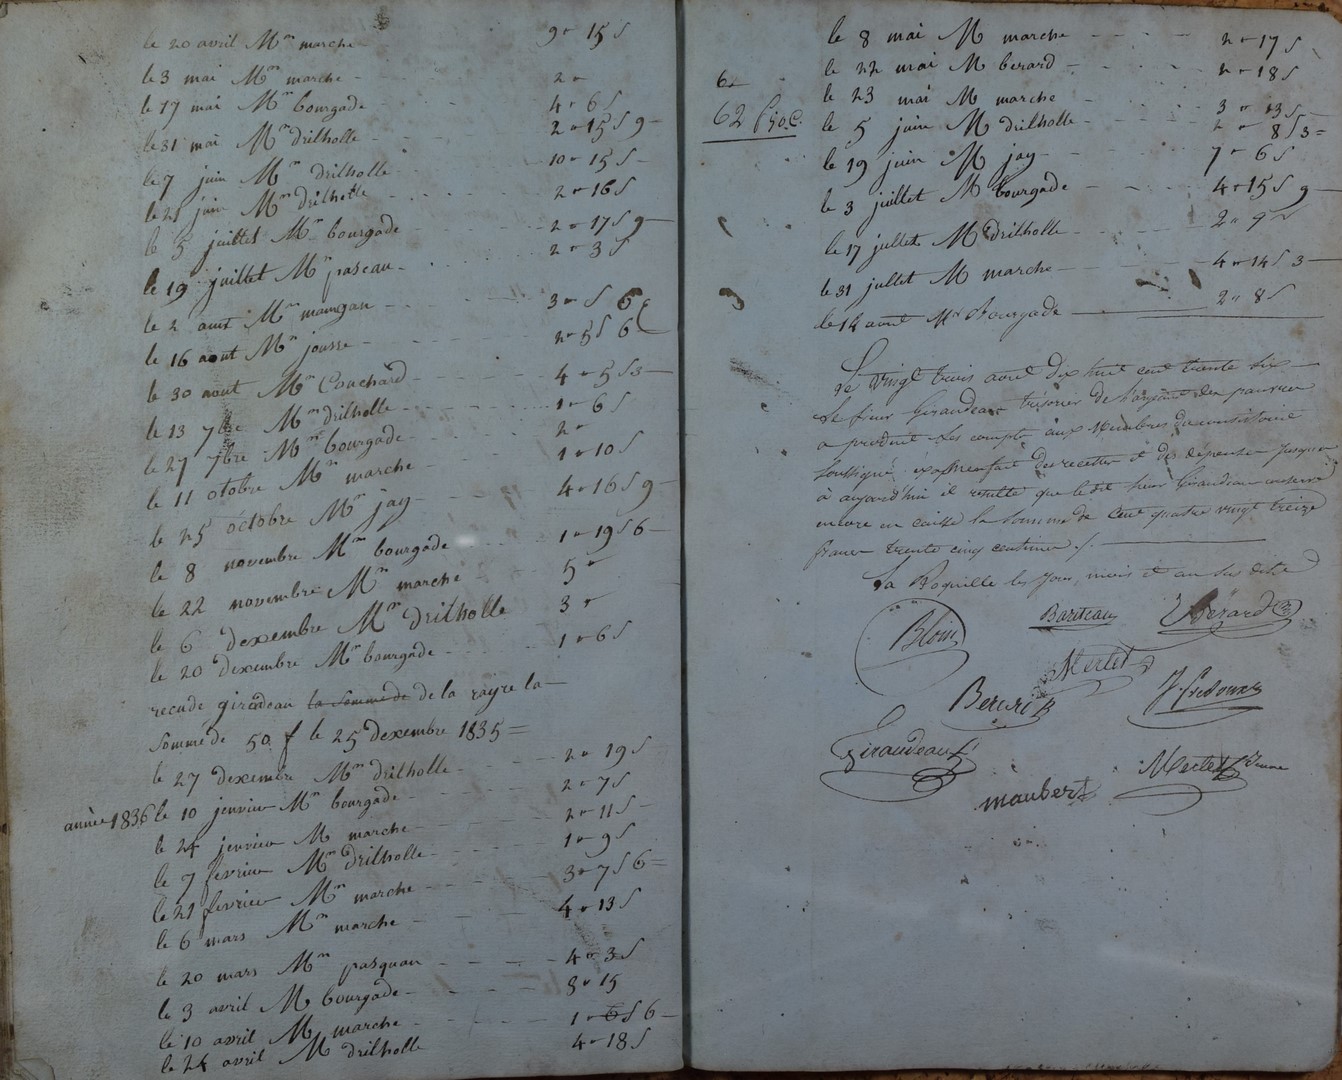 le 20 avril Mm marche 9 " 15 s
le 3 mai Mm marche 2 "
le 17 mai Mm bourgade 4 " 6 s
le 31 mai Mm drilholle 2 " 15 s 9
le 7 juin Mm drilholle 10 " 15 s
le 21 juin Mm drilholle 2 " 16 s
le 5 juillet Mm bourgade 2 " 17 s 9
le 19 juillet Mm paseau 2 " 3 s
le 2 aout Mm maingau 3 " s 6
le 16 aout Mm jousse 2 " 5 s 6
le 30 aout Mm Couchard 4 " 5 s 3
le 13 7bre Mm drilholle 1 " 6 s
le 27 7bre Mm bourgade 2 "
le 11 otobre Mm marche 1 " 10 s
le 25 octobre Mm jay 4 " 16 s 9
le 8 novembre Mm bourgade 1 " 19 s 6
le 22 novembre Mm marche 5 "
le 6 dexembre Mm drilholle 3 "
le 20 dexembre Mm bourgade 1 " 6 s
recude giradeau la somme de de la rayre la
somme de 50 f le 25 dexembre 1835 =
le 27 dexembre Mm drilholle 2 " 19 s
année 1836 le 10 jenvier Mm bourgade 2 " 7 s
le 24 jenvier M marche 2 " 11 s
le 7 fevrier Mm drilholle 1 " 9 s
le 21 fevrier Mm marche 3 " 7 s 6 =
le 6 mars Mm marche 4 " 13 s
le 20 mars Mm pasquau 4 " 3 s
le 3 avril M bourgade 3 " 15
le 10 avril M marche 1 " 6 s 6
le 24 avril M drilholle 4 " 18 s
le 8 mai M marche 2 " 17 s
le 22 mai M berard 2 " 18 s
6
le 23 mai M marche 3 " 13 s
62 f 50 c.
le 5 juin M drilholle 2 " 8 s 3 =
le 19 juin M jay 7 " 6 s
le 3 juillet M bourgade 4 " 15 s 9
le 17 jullet M drilholle 2 " 9 s
le 31 jullet M marche 4 " 14 s 3
le 14 aout Mr Bourgade 2 " 8 s
Le vingt trois aout dix huit cent trente six
le sieur Giraudeau trésorier de l'argent des pauvres
a produit ses compte aux Membres du consistoire
soussigné des recettes et des dépenses jusqu'a
à aujourd'hui il résulte que le dit sieur Giraudeau conserve
encore en caisse la somme de Cent quatre vingt treize
francs trente cinq centimes
La Roquille les jour, mois et an sus dits
Blois Bariteau Bérard
Mertet
J. fredoux
Giraudeau
Mertet Jeune
maubert